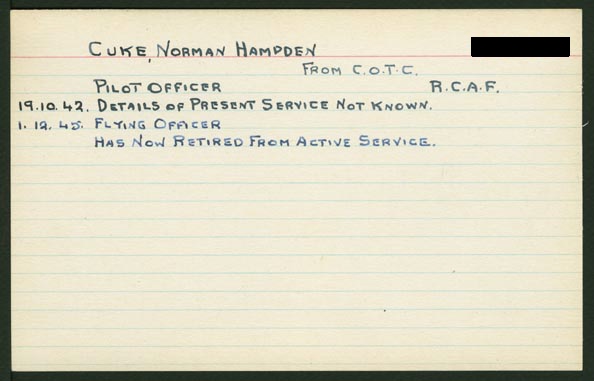 CUKE, NORMAN HAMPDEN
FROM C.O.T.C.
PILOT OFFICER R.C.A.F.
19.10.42. DETAILS OF PRESENT SERVICE NOT KNOWN.
1.12.45. FLYING OFFICER
HAS NOW RETIRED FROM ACTIVE SERVICE.